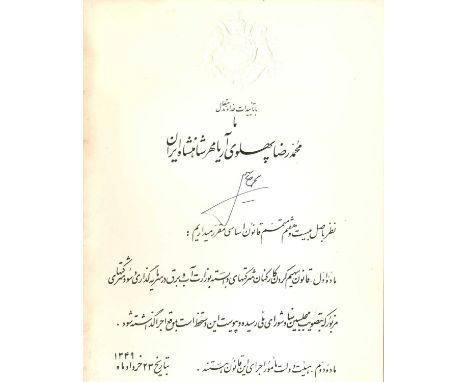 با تأییدات خداوند متعال
ما
محمدرضا پهلوی آریامهر شاهنشاه ایران
نظر باصل بیست و هفتم متمم قانون اساسی مقرر میداریم :
ماده اول . قانون سهیم کردن کارکنان شرکتهای وابسته بوزارت آب و برق در سرمایه گذاری
مزبور که بتصویب مجلسین سنا و شورای ملی رسیده و پیوست این دستخط است بموقع اجرا گذاشته شود .
ماده دوم . هیئت دولت مأمور اجرای این قانون هستند .
بتاریخ ۲۳ خرداد ماه ۱۳۴۹